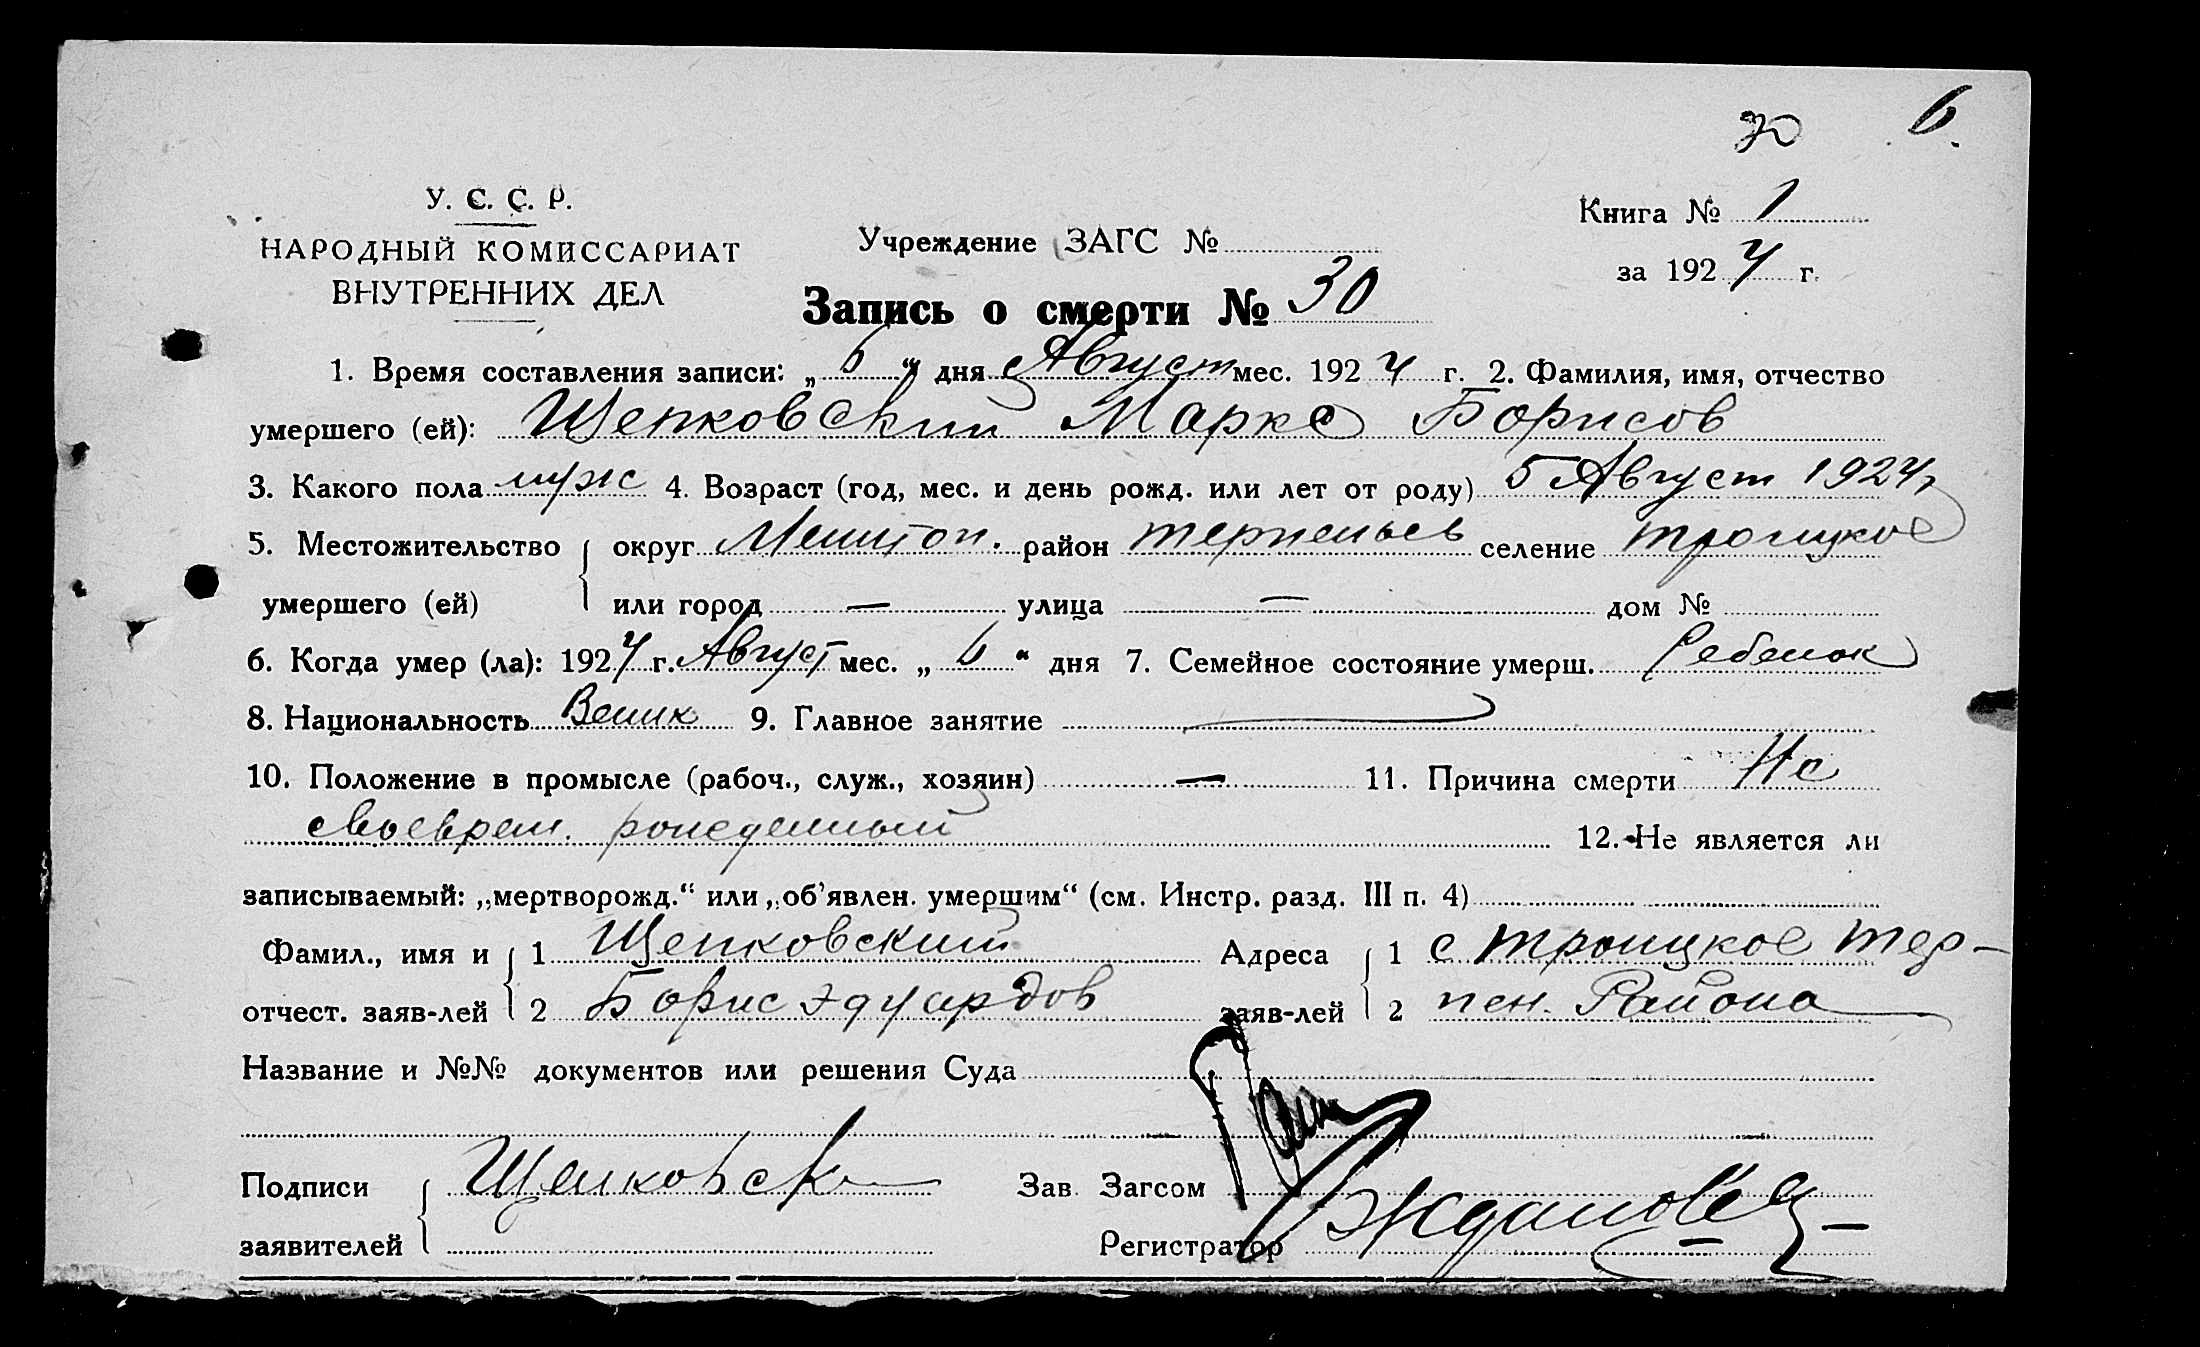 30 6.
У. С. С. Р.
НАРОДНЫЙ КОМИССАРИАТ
ВНУТРЕННИХ ДЕЛ
Учреждение ЗАГС №
Книга № 1
за 1924 г.
Запись о смерти № 30
1. Время составления записи: „6“ дня Август мес. 1924 г. 2. Фамилия, имя, отчество
умершего (ей): Щепковский Марке Борисов
3. Какого пола муж 4. Возраст (год, мес. и день рожд. или лет от роду) 5 Август 1924 г
5. Местожительство округ район селение Троицкое
умершего (ей) или город — улица — дом №
6. Когда умер (ла): 1924 г. Август мес. „6“ дня 7. Семейное состояние умерш. Ребенок
8. Национальность 9. Главное занятие
10. Положение в промысле (рабоч., служ., хозяин) — 11. Причина смерти Не
своеврем. рожденный 12. Не является ли
записываемый: „мертворожд.“ или „об'явлен. умершим“ (см. Инстр. разд. III п. 4)
Фамил., имя и 1 Щепковский Адреса 1 с Троицкое Тер-
отчест. заяв-лей 2 Борис Эдуардов заяв-лей 2 пен. Района
Название и №№ документов или решения Суда
Подписи Щепковск Зав. Загсом
заявителей Регистратор